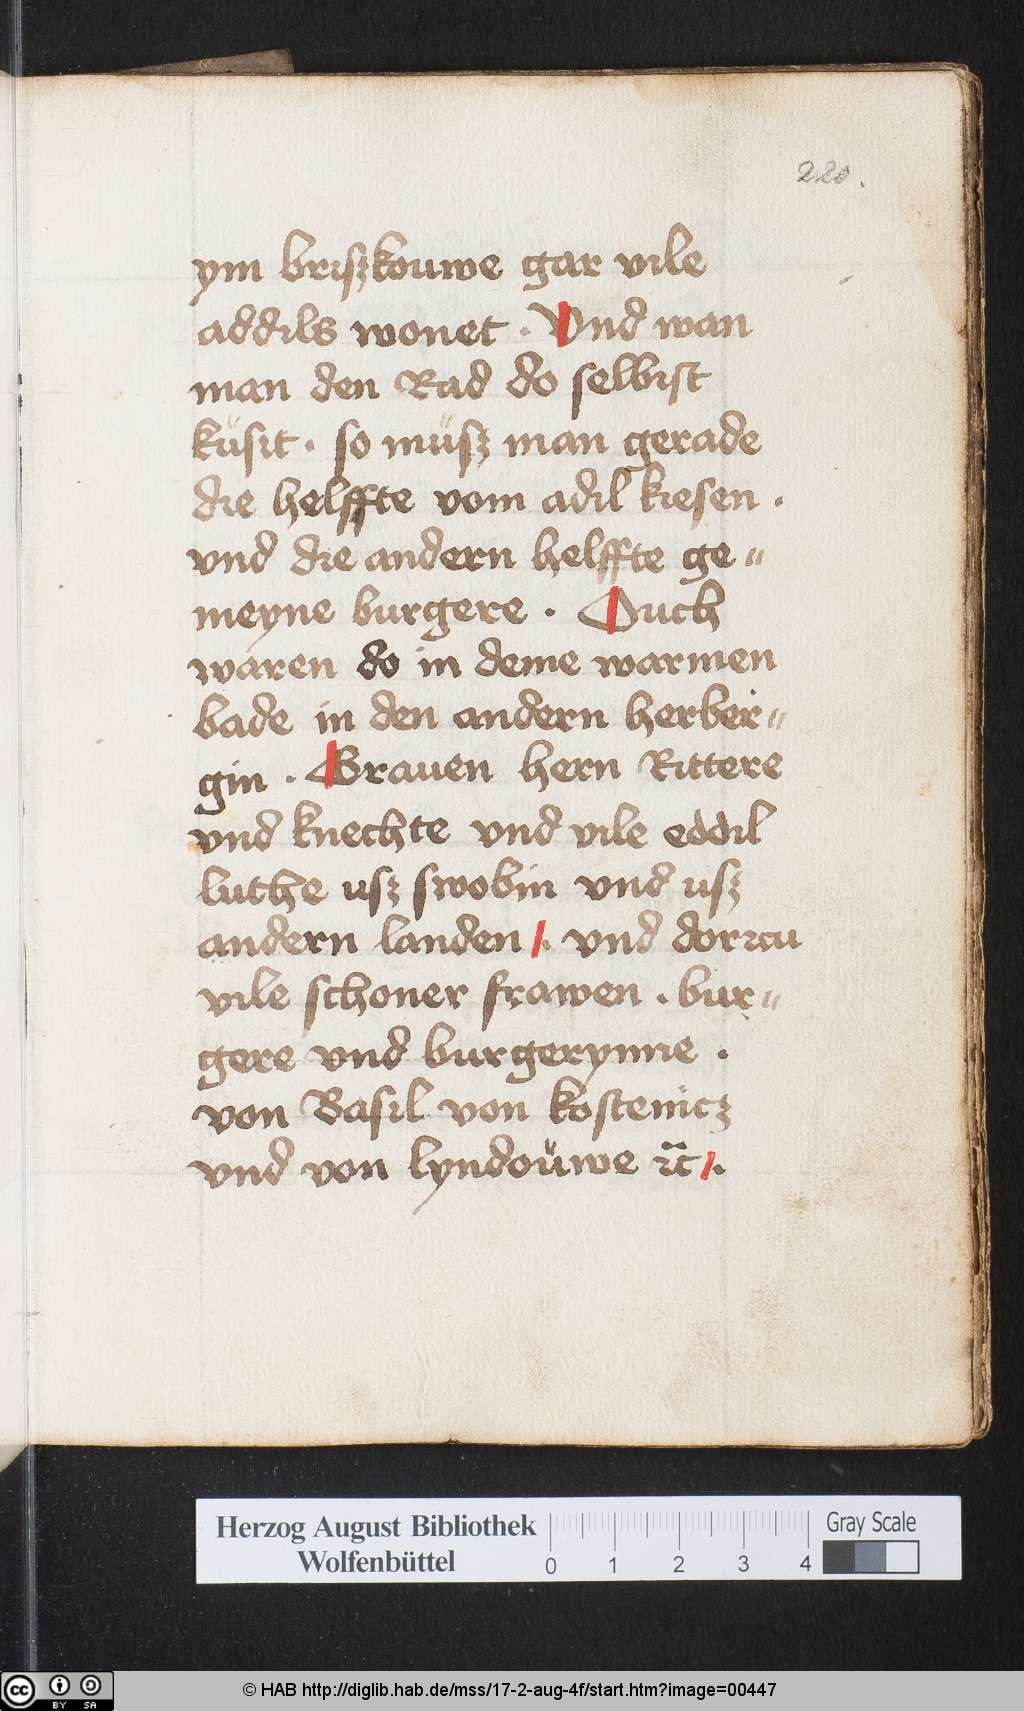 220.
ym briszkouwe gar vile
addils wonet . Vnd wan
man den Rad do selbist
küsit . so müsz man gerade
die helffte vom adil kiesen .
vnd die andern helffte ge=
meyne burgere . Ouch
waren do in deme warmen
bade in den andern herber=
gin . Grauen hern Rittere
vnd knechte vnd vile eddil
luthe usz swobin vnd usz
andern landen /. vnd dorzcu
vile schoner frawen . bur=
gere vnd burgerynne .
von Basil von kostenicz
vnd von lyndoüwe ꝛc̃ /.
Herzog August Bibliothek
Wolfenbüttel
0 1 2 3 4
Gray Scale
cc BY SA
© HAB http://diglib.hab.de/mss/17-2-aug-4f/start.htm?image=00447